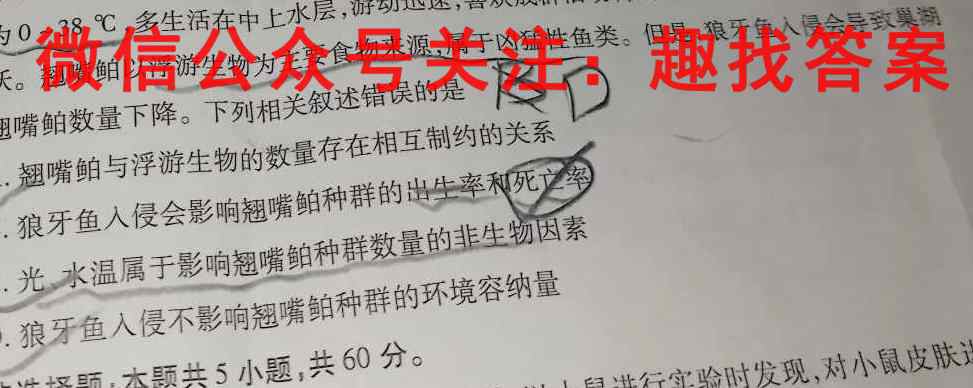 为 0～38 ℃，多生活在中上水层，游动迅速，
跃。翘嘴鲌以浮游生物为主要食物来源，属于凶猛性鱼类。但是，狼牙鱼入侵会导致巢湖
微信公众号关注：趣找答案
翘嘴鲌数量下降。下列相关叙述错误的是 BD
. 翘嘴鲌与浮游生物的数量存在相互制约的关系
. 狼牙鱼入侵会影响翘嘴鲌种群的出生率和死亡率
. 光、水温属于影响翘嘴鲌种群数量的非生物因素
. 狼牙鱼入侵不影响翘嘴鲌种群的环境容纳量
选择题：本题共 5 小题，共 60 分。
鼠进行实验时发现，对小鼠皮肤进